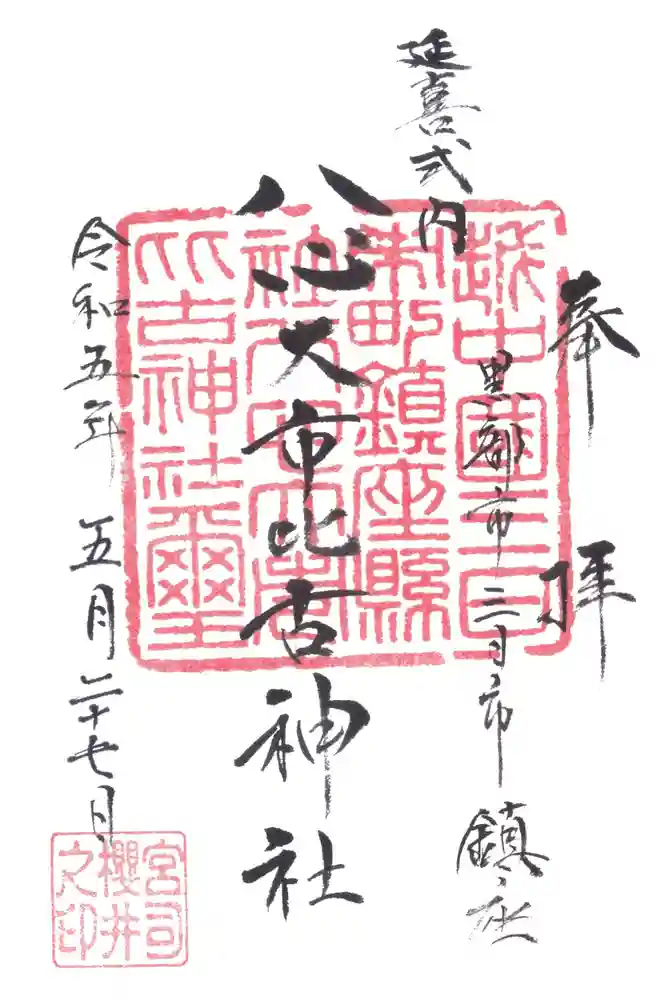 奉拝
延喜式内
黒部市三日市鎮座
八心大市比古神社
令和五年五月二十七日
越中國三日
市町鎮座縣
社八心大市
比古神社璽
宮司
櫻井
之印